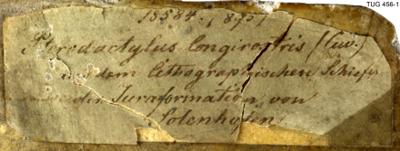 TUG 456-1
Pterodactylus longirostris (Cuv.)
aus dem lithographischen Schiefer
der Juraformation von
Solenhofen